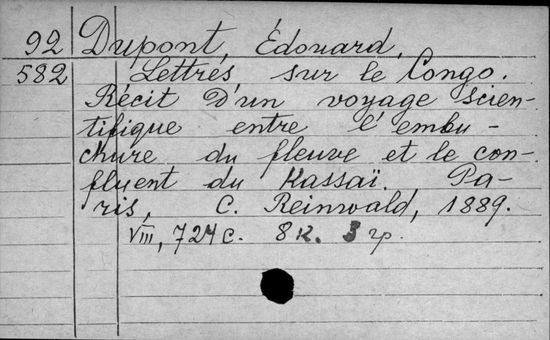 92 Dupont, Édouard,
582 Lettres sur le Congo.
Récit d'un voyage scien-
tifique entre l'embu-
chure du fleuve et le con-
fluent du Kassaï. Pa-
ris, C. Reinwald, 1889.
VIII, 724 с. 8 к. 3 гр.